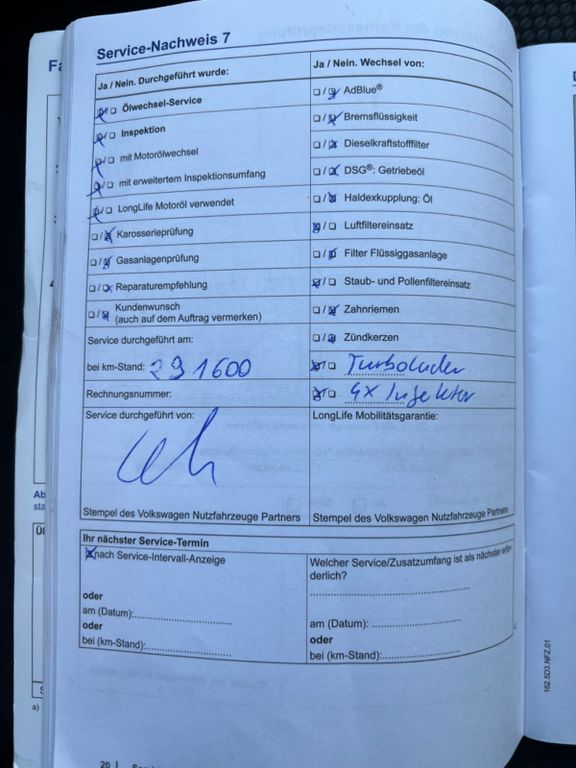 Service-Nachweis 7
Ja / Nein. Durchgeführt wurde:
Ölwechsel-Service
Inspektion
mit Motorölwechsel
mit erweitertem Inspektionsumfang
LongLife Motoröl verwendet
Karosserieprüfung
Gasanlagenprüfung
Reparaturempfehlung
Kundenwunsch
(auch auf dem Auftrag vermerken)
Service durchgeführt am:
bei km-Stand: 291600
Rechnungsnummer:
Service durchgeführt von:
Stempel des Volkswagen Nutzfahrzeuge Partners
Ja / Nein. Wechsel von:
AdBlue®
Bremsflüssigkeit
Dieselkraftstofffilter
DSG®: Getriebeöl
Haldexkupplung: Öl
Luftfiltereinsatz
Filter Flüssiggasanlage
Staub- und Pollenfiltereinsatz
Zahnriemen
Zündkerzen
Turbolader
4x Injektor
LongLife Mobilitätsgarantie:
Stempel des Volkswagen Nutzfahrzeuge Partners
Ihr nächster Service-Termin
nach Service-Intervall-Anzeige
oder
am (Datum):
oder
bei (km-Stand):
Welcher Service/Zusatzumfang ist als nächster erfor-
derlich?
am (Datum):
oder
bei (km-Stand):
162.5D3.NFZ.01
20